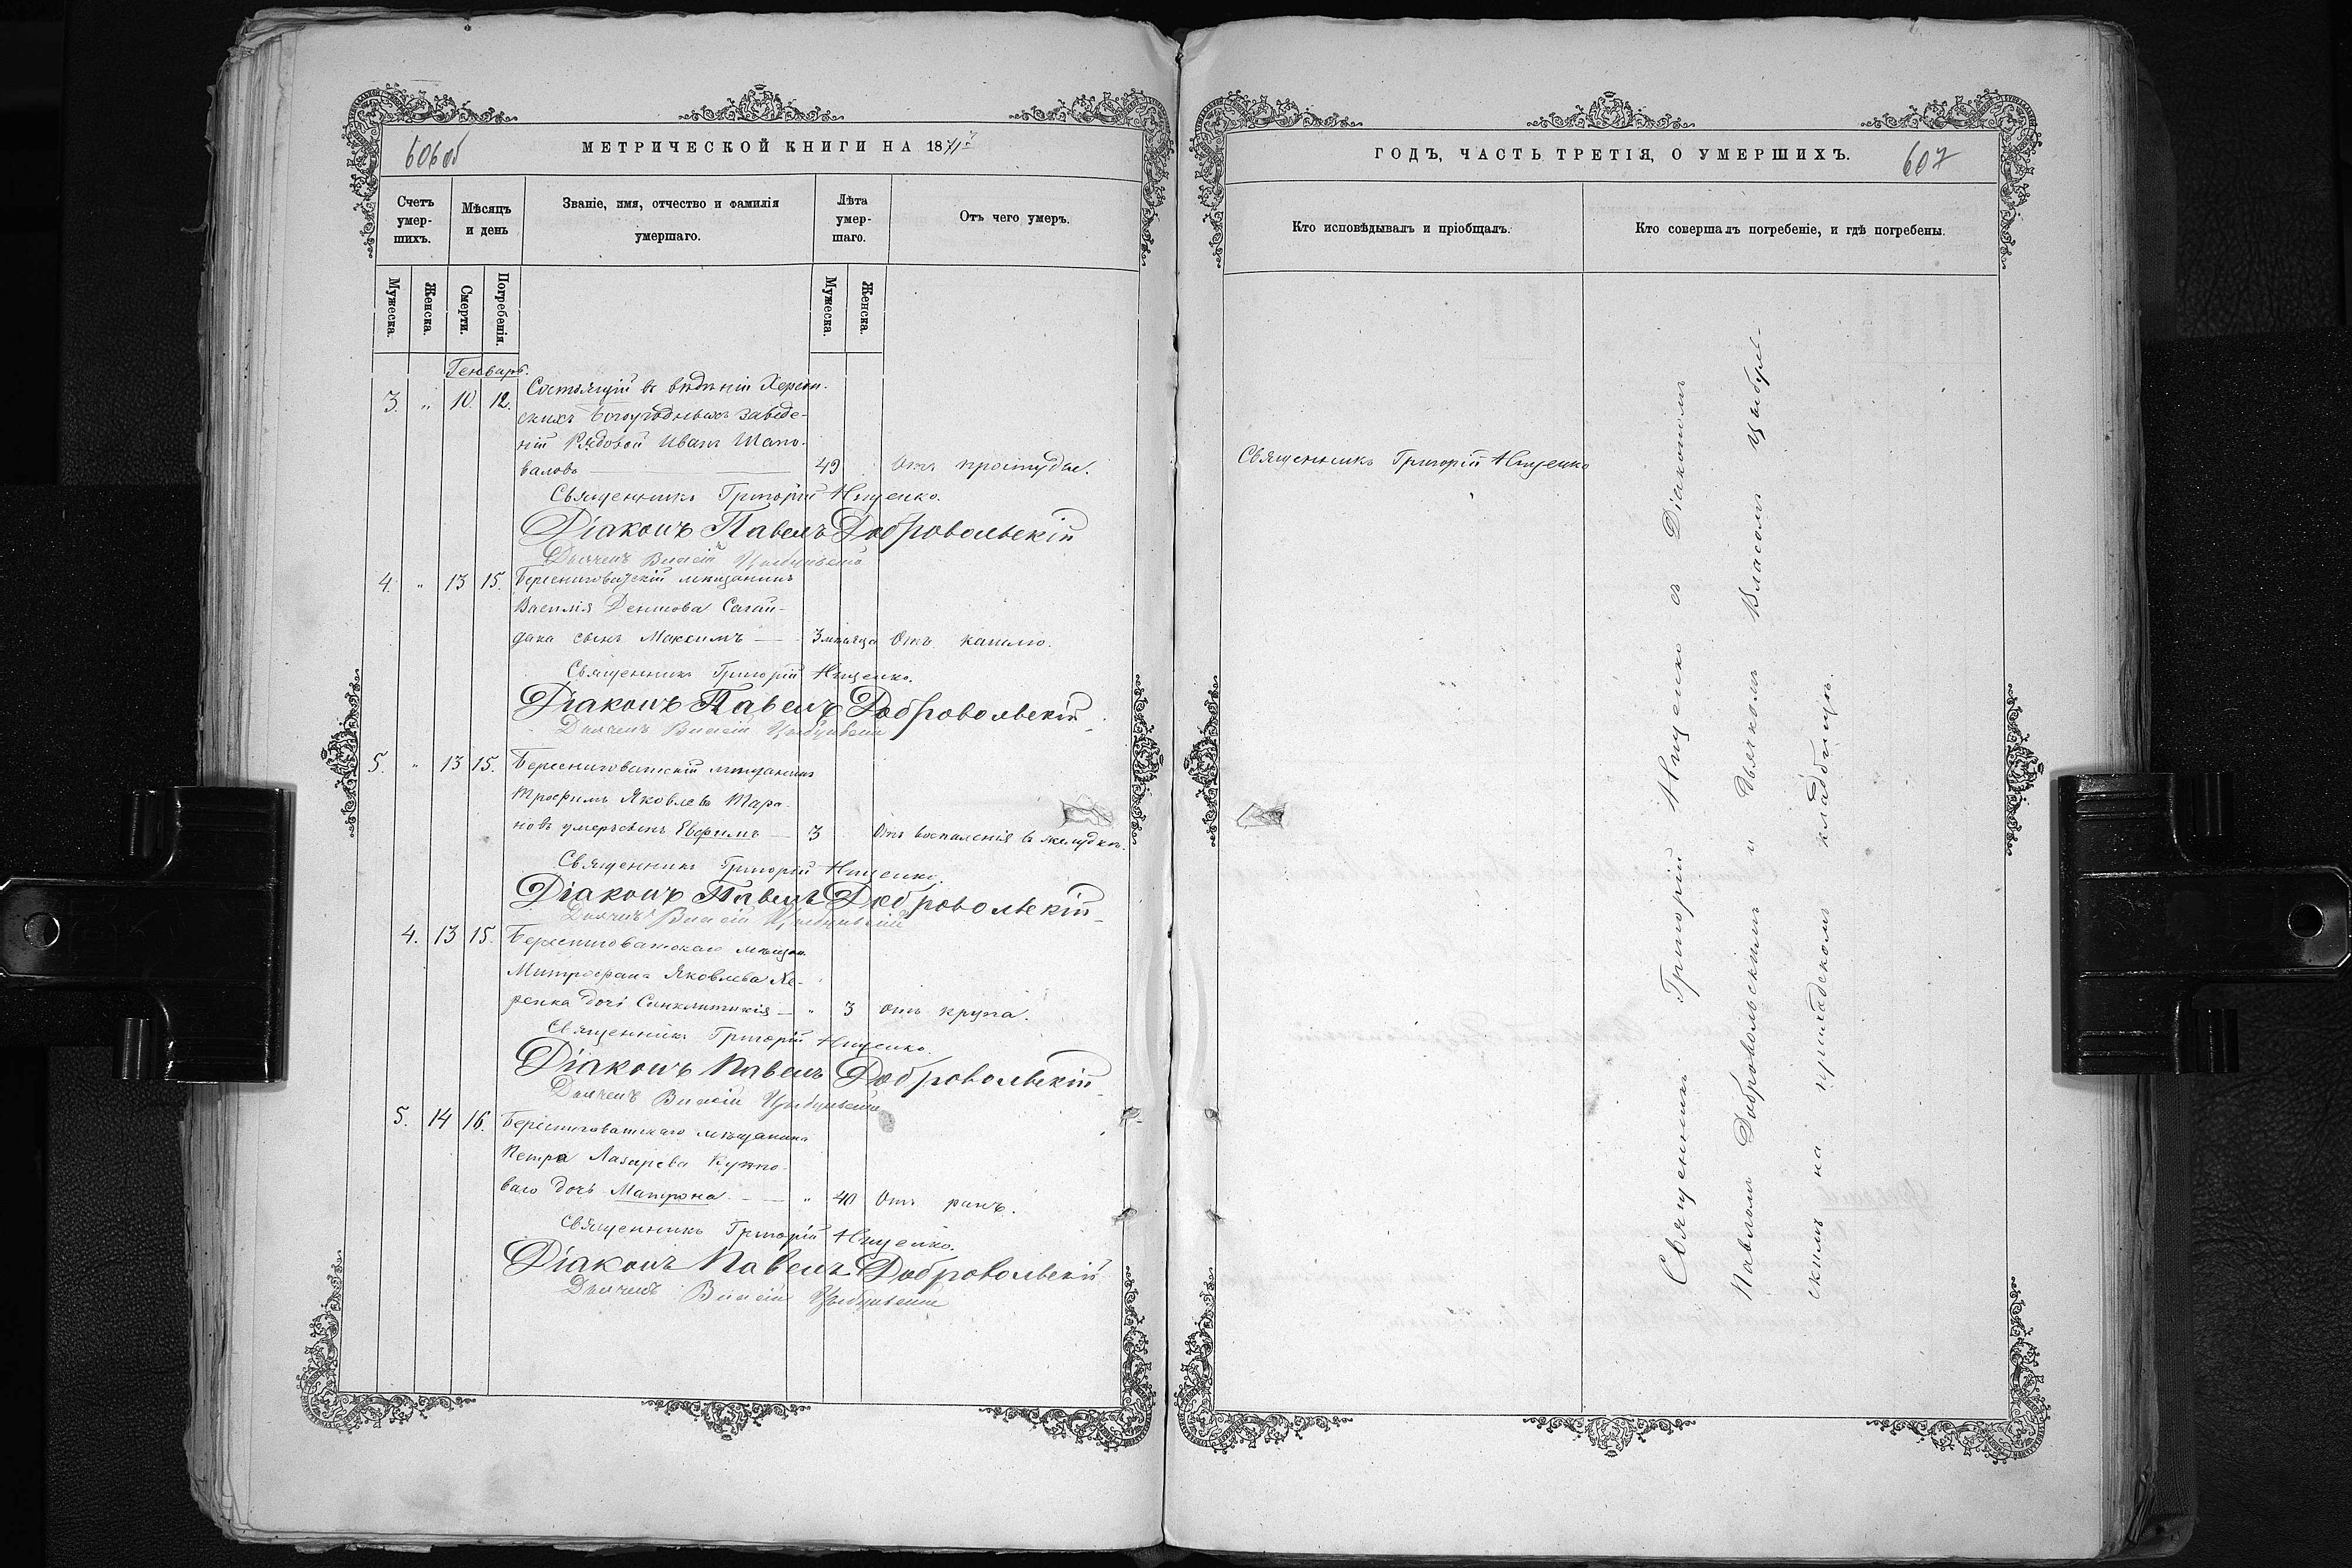 606 об
МЕТРИЧЕСКОЙ КНИГИ НА 1871й
Счетъ умер-шихъ.
Мѣсяцъ и день
Званіе, имя, отчество и фамилія умершаго.
Лѣта умер-шаго.
Отъ чего умеръ.
Мужеска.
Женска.
Смерти.
Погребенія.
Мужеска.
Женска.
Генварь.
3. " 10. 12. Состоящій въ вѣдѣніи Херсон-
скихъ Богоугодныхъ заведе-
ній Рядовой Иванъ Шапо-
валовъ — 49 Отъ простуды.
Священникъ Григорій Нищенко.
Діаконъ Павелъ Добровольскій
Дьячекъ Власій
4. " 13 15. Бересниговатскій мѣщанинъ
Василія Денисова Сагай-
дака сынъ Максимъ — 3 мѣсяца Отъ кашлю.
Священникъ Григорій Нищенко.
Діаконъ Павелъ Добровольскій
Дьячекъ Власій
5. " 13 15. Бересниговатскій мѣщанинъ
Трофимъ Яковлевъ Тара-
новъ умеръ сынъ Евфимъ — 3 Отъ воспаленія въ желудкѣ.
Священникъ Григорій Нищенко.
Діаконъ Павелъ Добровольскій
Дьячекъ Власій
4. 13 15. Бересниговатскаго мѣщан.
Митрофана Яковлева Хе-
ренка дочь Синклитикія — " 3 отъ крупа.
Священникъ Григорій Нищенко.
Діаконъ Павелъ Добровольскій
Дьячекъ Власій
5. 14 16. Бересниговатскаго мѣщанина
Петра Лазарева
ваго дочь Матрона — " 40 Отъ ранъ.
Священникъ Григорій Нищенко.
Діаконъ Павелъ Добровольскій
Дьячекъ Власій
ГОДЪ, ЧАСТЬ ТРЕТІЯ, О УМЕРШИХЪ.
607
Кто исповѣдывалъ и пріобщалъ.
Кто совершалъ погребеніе, и гдѣ погребены.
Священникъ Григорій Нищенко
Священникъ Григорій Нищенко съ Діакономъ
Павломъ Добровольскимъ и Дьячкомъ Власомъ Цыбуль-
скимъ на приходскомъ кладбищѣ.